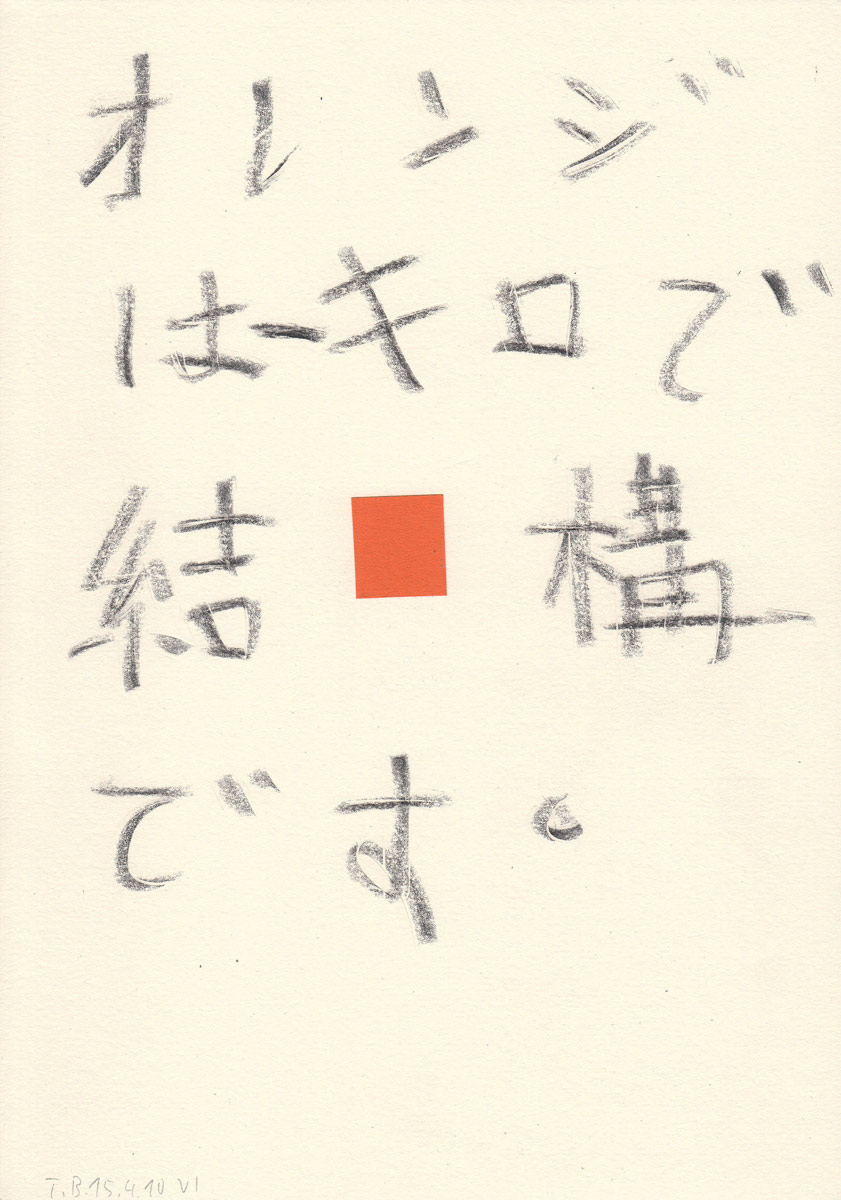 オレンジ
は一キロで
結構
です。
T.B.15.4.10 VI